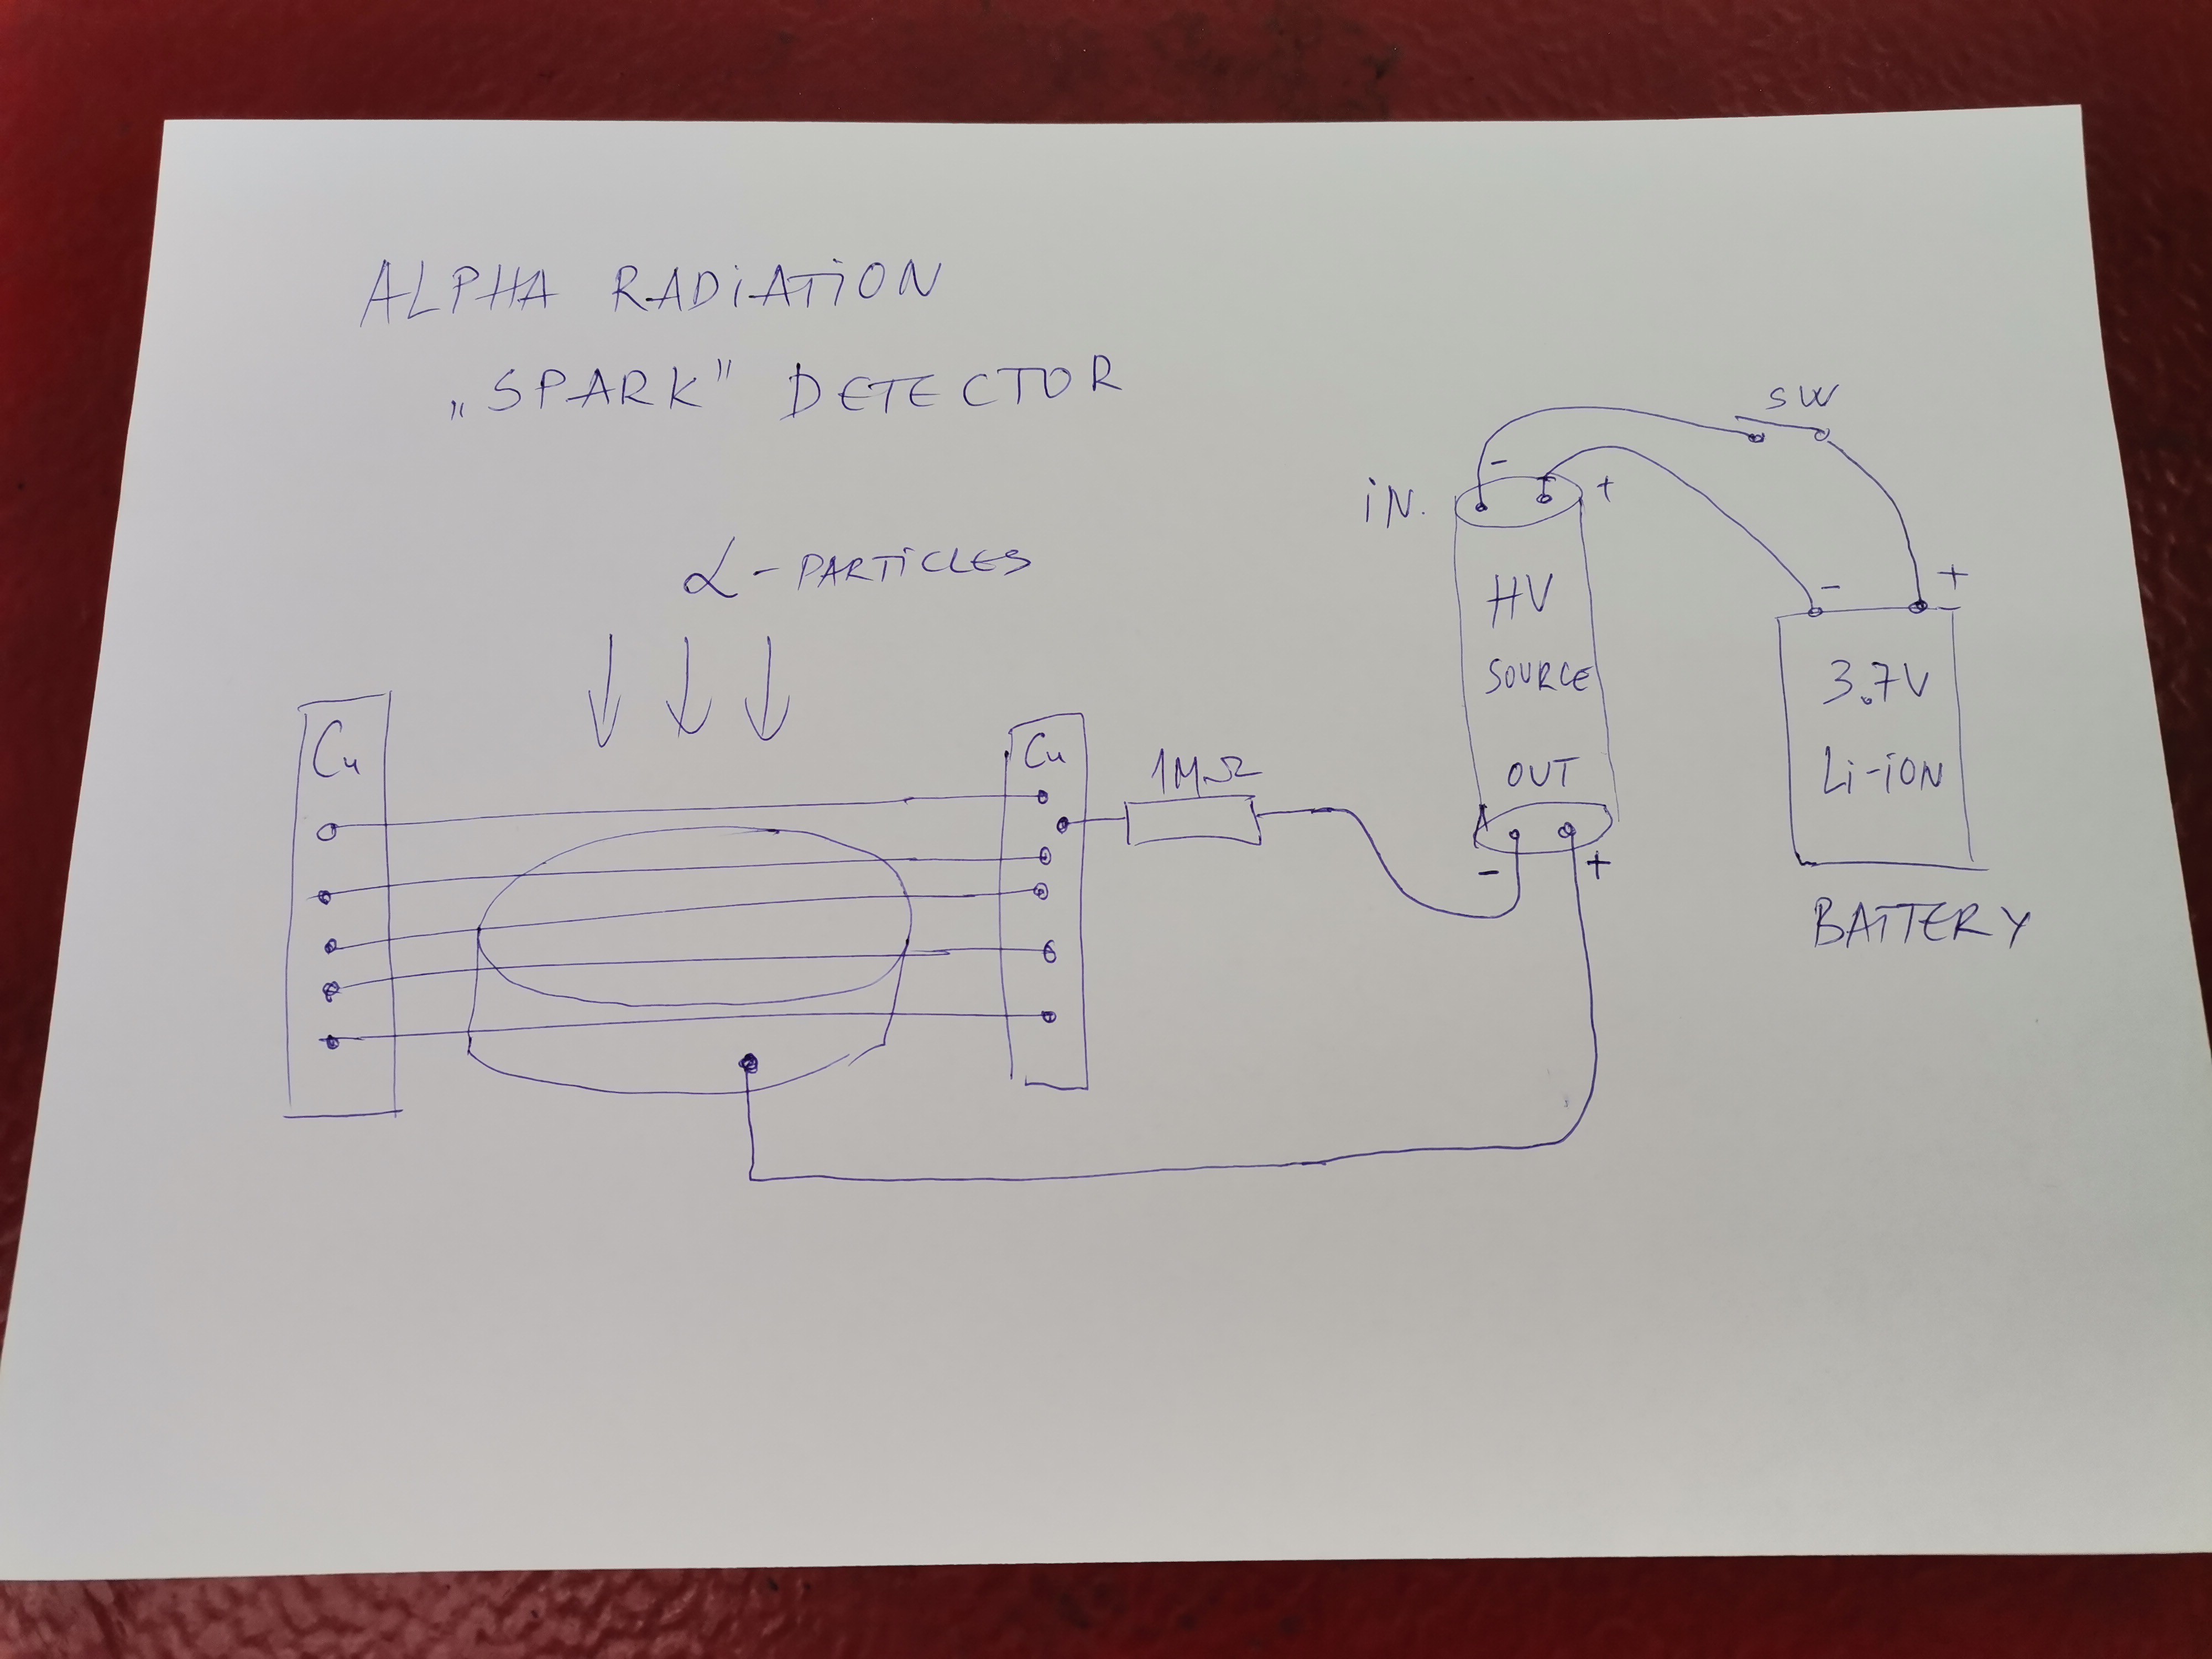 ALPHA RADiATiON
„SPARK" DETECTOR
SW
- +
iN.
α - PARTiCLES
- +
HV
SOURCE
OUT
3.7V
Li-iON
Cu
Cu
1MΩ
- +
BATTERY